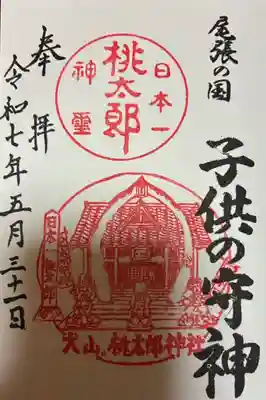 尾張の国
子供の守神
日本一
桃太郎
神霊
奉拝
令和七年五月三十一日
犬山 桃太郎神社